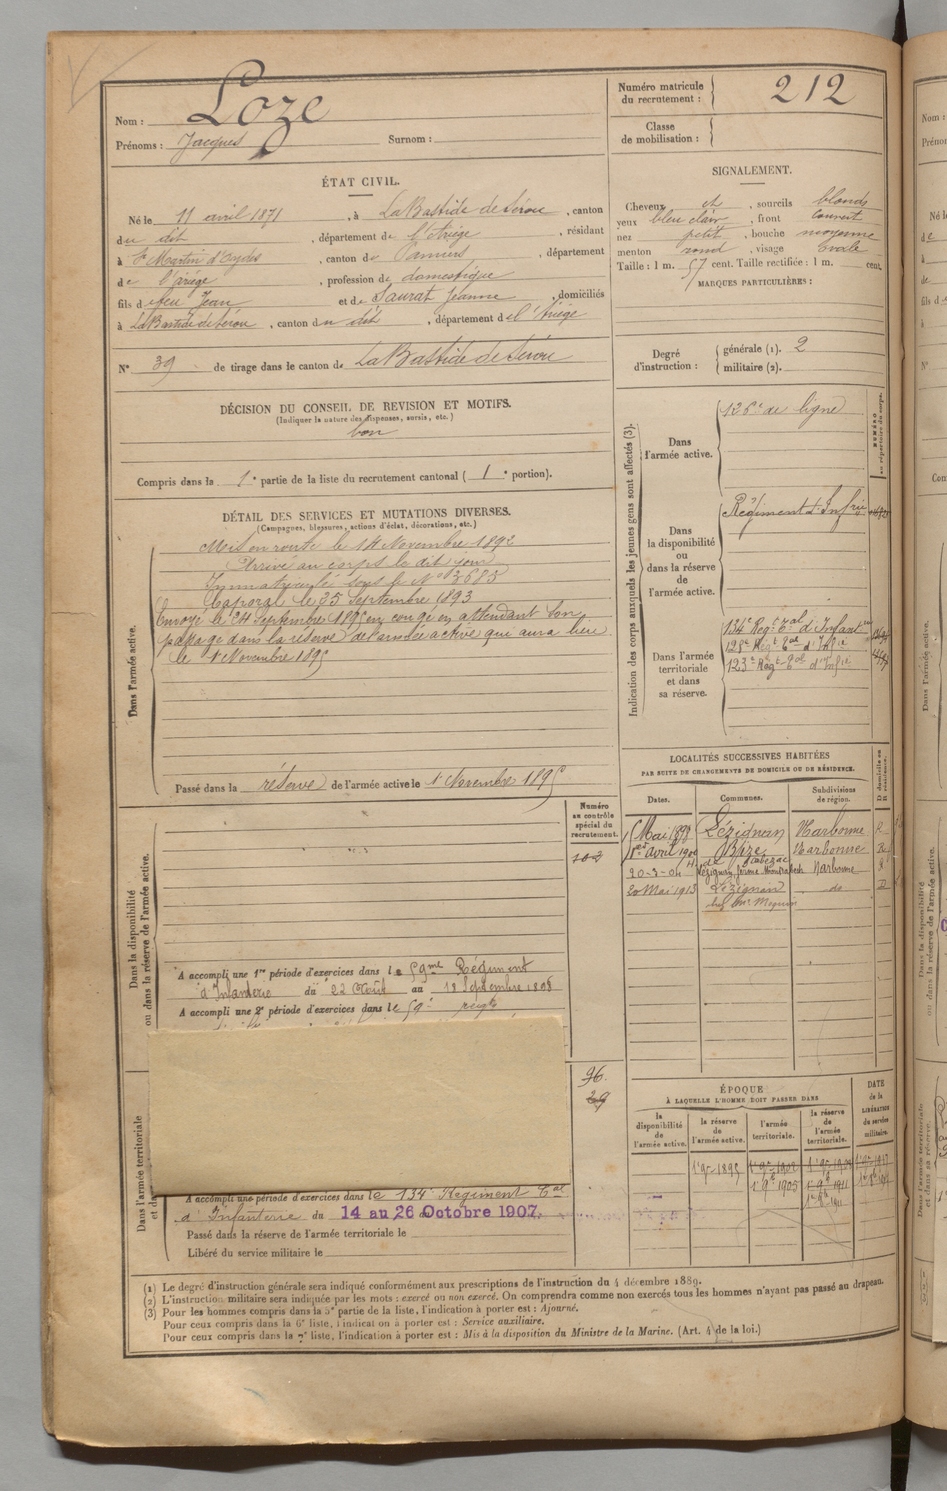 Nom : Loze
Prénoms : Jacques Surnom :
Numéro matricule du recrutement : 212
Classe de mobilisation :
ÉTAT CIVIL.
Né le 11 avril 1871, à La Bastide de Sérou, canton
du dit, département de l'Ariège, résidant
à St Martin d'Oydes, canton de Pamiers, département
de l'ariège, profession de domestique
fils de feu Jean et de Saurat Jeanne, domiciliés
à La Bastide de Sérou, canton du dit, département de l'Ariège
N° 39 de tirage dans le canton de La Bastide de Sérou
SIGNALEMENT.
Cheveux et sourcils blonds
yeux bleu clair, front couvert
nez petit, bouche moyenne
menton rond, visage ovale
Taille : 1 m. 57 cent. Taille rectifiée : 1 m. cent.
MARQUES PARTICULIÈRES :
Degré d'instruction : générale (1). 2
militaire (2).
DÉCISION DU CONSEIL DE REVISION ET MOTIFS.
(Indiquer la nature des dispenses, sursis, etc.)
bon
Compris dans la 1e partie de la liste du recrutement cantonal (1e portion).
DÉTAIL DES SERVICES ET MUTATIONS DIVERSES.
(Campagnes, blessures, actions d'éclat, décorations, etc.)
Dans l'armée active.
Mis en route le 14 Novembre 1892
Arrivé au corps le dit jour
Immatriculé sous le N° 3683
Caporal le 25 Septembre 1893
Envoyé le 24 Septembre 1895 en congé en attendant son
passage dans la réserve de l'armée active qui aura lieu
le 1 Novembre 1895
Passé dans la réserve de l'armée active le 1 Novembre 1895
Indication des corps auxquels les jeunes gens sont affectés (3).
NUMÉRO au répertoire du corps.
Dans l'armée active.
126e de ligne
Dans la disponibilité ou dans la réserve de l'armée active.
Régiment d'Infrie
Dans l'armée territoriale et dans sa réserve.
134e Régt tal d'Infant
128e Régt Tal d'Infie
123e Régt Tal d'Infie
LOCALITÉS SUCCESSIVES HABITÉES
PAR SUITE DE CHANGEMENTS DE DOMICILE OU DE RÉSIDENCE.
Dates. Communes. Subdivisions de région. D domicile ou R résidence.
Mai 1898 Lézignan Narbonne R
1er avril 1900 Bize Narbonne
20-3-04 Lézignan Narbonne
20 Mai 1913 Lézignan do D
Numéro au contrôle spécial du recrutement.
Dans la disponibilité ou dans la réserve de l'armée active.
A accompli une 1re période d'exercices dans le 59me Régiment
d'Infanterie du 22 Août au 18 Septembre 1898
A accompli une 2e période d'exercices dans le 59e
96.
29
Dans l'armée territoriale
A accompli une période d'exercices dans le 134e Régiment Tal
d'Infanterie du 14 au 26 Octobre 1907.
Passé dans la réserve de l'armée territoriale le
Libéré du service militaire le
ÉPOQUE
À LAQUELLE L'HOMME DOIT PASSER DANS
la disponibilité de l'armée active. la réserve de l'armée active. l'armée territoriale. la réserve de l'armée territoriale. DATE de la LIBÉRATION du service militaire.
(1) Le degré d'instruction générale sera indiqué conformément aux prescriptions de l'instruction du 4 décembre 1889.
(2) L'instruction militaire sera indiquée par les mots : exercé ou non exercé. On comprendra comme non exercés tous les hommes n'ayant pas passé au drapeau.
(3) Pour les hommes compris dans la 5e partie de la liste, l'indication à porter est : Ajourné.
Pour ceux compris dans la 6e liste, l'indication à porter est : Service auxiliaire.
Pour ceux compris dans la 7e liste, l'indication à porter est : Mis à la disposition du Ministre de la Marine. (Art. 4 de la loi.)